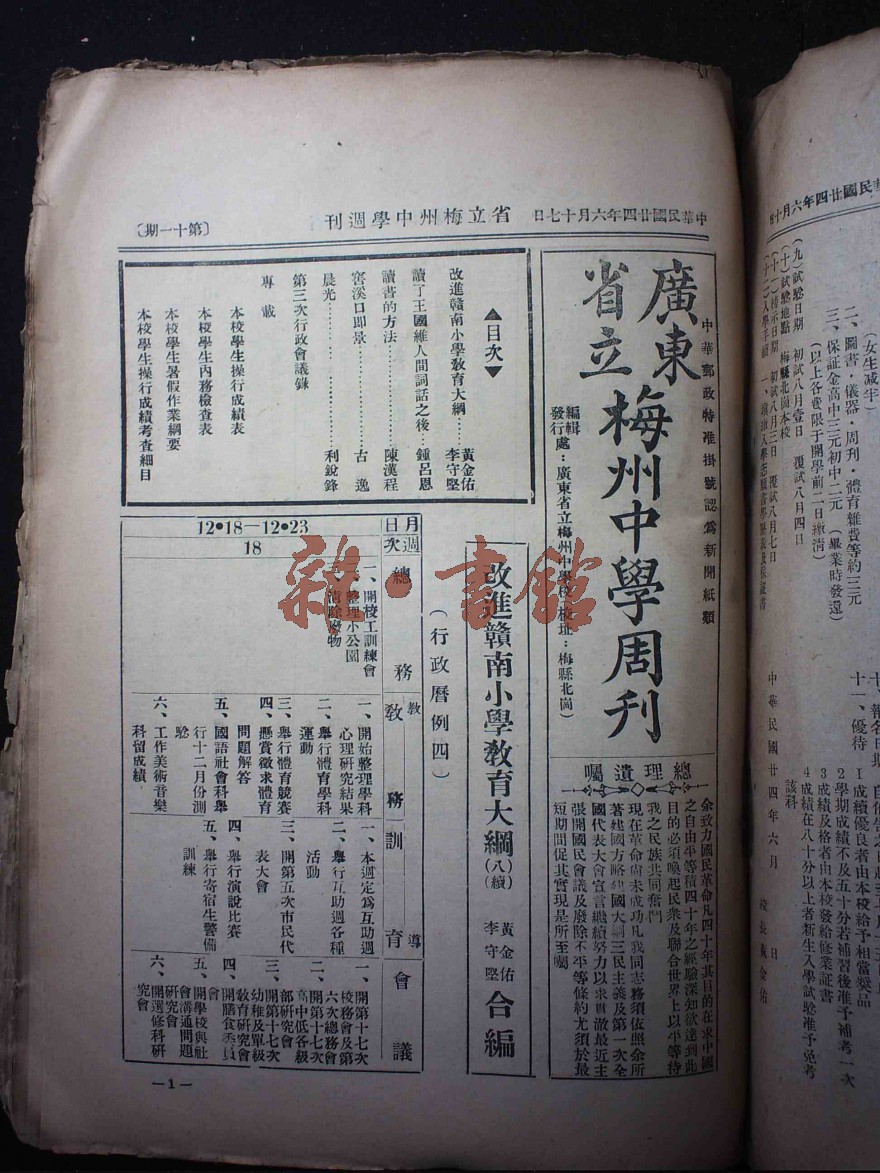 中華民國廿四年六月十七日
省立梅州中學週刊
〔第十一期〕
中華郵政特准掛號認爲新聞紙類
廣東
省立
梅州中學周刊
編輯
發行處：廣東省立梅州中學校（校址：梅縣北崗）
總理遺囑
余致力國民革命凡四十年其目的在求中國
之自由平等積四十年之經驗深知欲達到此
目的必須喚起民衆及聯合世界上以平等待
我之民族共同奮鬥
現在革命尚未成功凡我同志務須依照余所
著建國方略建國大綱三民主義及第一次全
國代表大會宣言繼續努力以求貫澈最近主
張開國民會議及廢除不平等條約尤須於最
短期間促其實現是所至囑
▲目次▼
改進贛南小學敎育大綱……黃金佑
李守堅
讀了王國維人間詞話之後…鍾呂恩
讀書的方法……陳漢程
窖溪口即景……古逸
晨光……利銳鋒
第三次行政會議錄
專載
本校學生操行成績表
本校學生內務檢查表
本校學生暑假作業綱要
本校學生操行成績考查細目
改進贛南小學敎育大綱（八續）
黃金佑
李守堅
合編
（行政曆例四）
月日
12•18—12•23
週次
18
總務
一、開校工訓練會
二、整理小公園
三、清除廢物
敎務
一、開始整理學科
心理研究結果
二、舉行體育學科
運動
三、舉行體育競賽
四、懸賞徵求體育
問題解答
五、國語社會科舉
行十二月份測
驗
六、工作美術音樂
科留成績
敎訓導育
一、本週定爲互助週
二、舉行互助週各種
活動
三、開第五次市民代
表大會
四、舉行演說比賽
五、舉行寄宿生警備
訓練
會議
一、開第十七次
校務會及第
六次總務會
二、開第十七次
高中低各級
部研究會
三、開第十七次
幼稚及單級
敎育研究會
四、開膳食委員
會
五、開學校與社
會溝通問題
研究會
六、開選修科研
究會
—1—
雜·書館
華民國廿四年六月十
（女生減半）
二、圖書・儀器・周刊・體育雜費等約三元
三、保証金高中三元初中二元（畢業時發還）
（以上各費限于開學前二日繳清）
（九）試驗日期　初試八月壹日　覆試八月四日
（十）試驗地點　梅縣北崗本校
初試八月三日　覆試八月七日
十一、優待
1成績優良者由本校給予相當獎品
2學期成績不及五十分若補習後准予補考一次
3成績及格者由本校發給修業証書
4成績在八十分以上者新生入學試驗准予免考
該科
中華民國廿四年六月　日
校長黃金佑